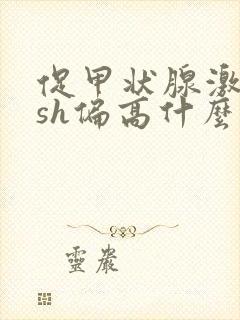 促甲状腺激
sh偏高什麼
靈巖